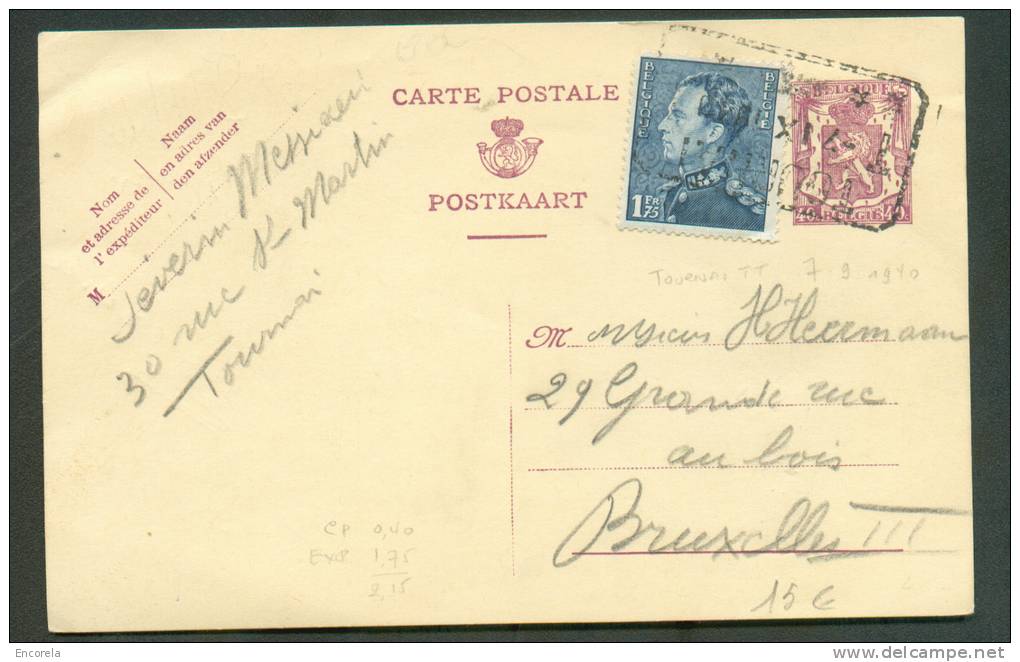 CARTE POSTALE
POSTKAART
Nom
et adresse de
l'expéditeur
Naam
en adres van
den afzender
M
Severin Messiaen
30 rue St Martin
Tournai
BELGIQUE
BELGIE
1 FR 75
BELGIQUE
40 BELGIË 40
TOURNAI TT 7 9 1940
M Messieurs H Heermann
29 Grande rue
au bois
Bruxelles III
CP 0,40
EXP 1,75
2,15
15 €
Encorela
delcampe.net